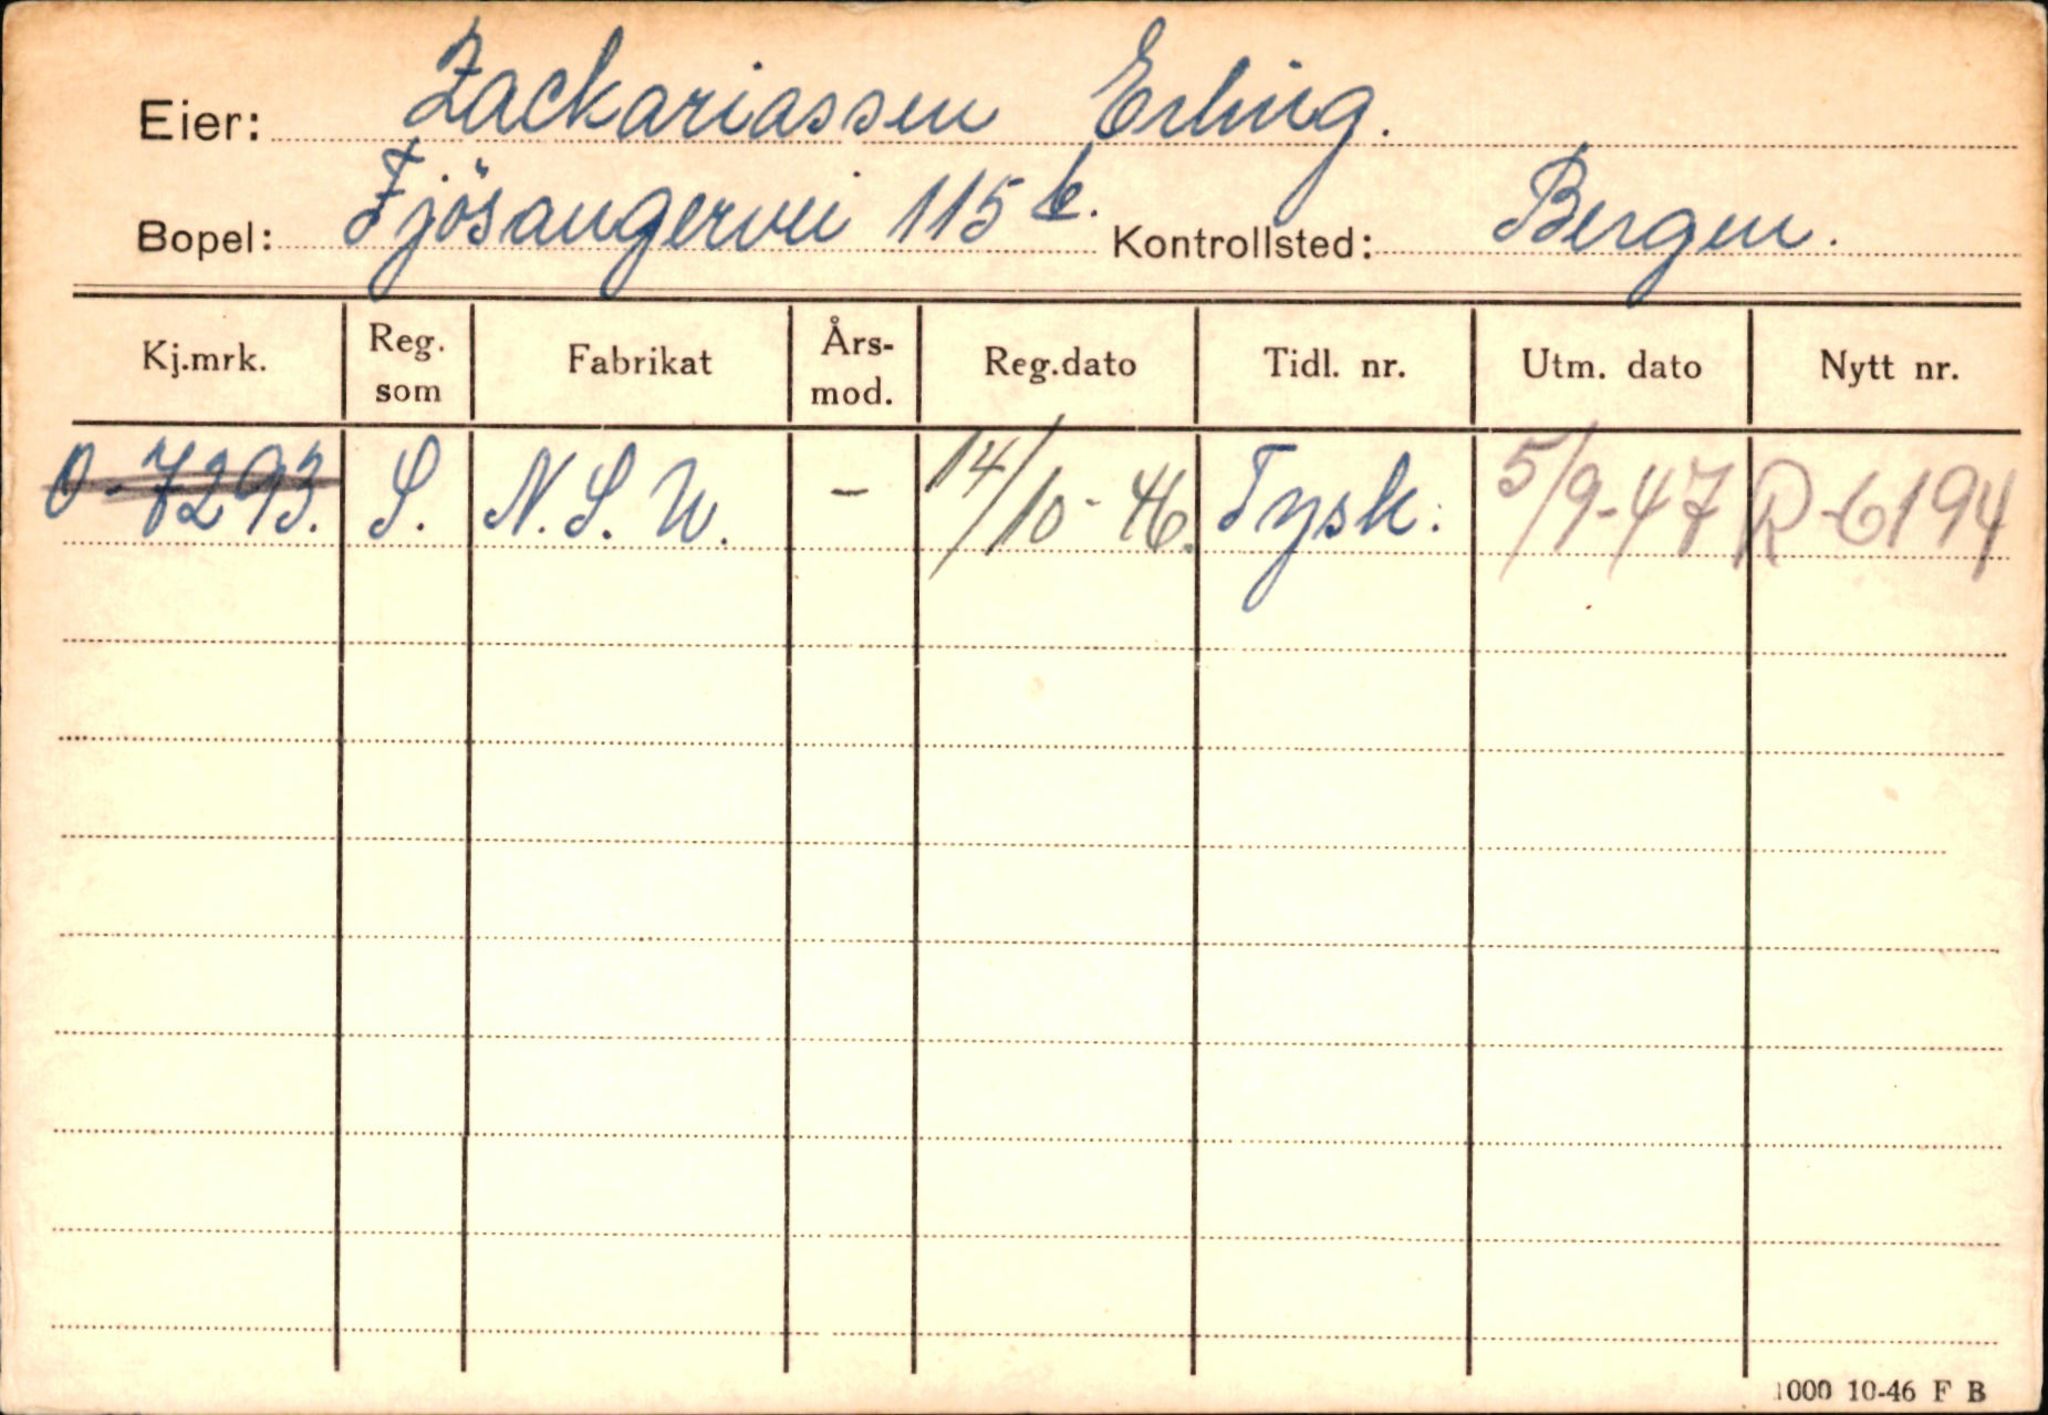 Eier: Zackariassen Erling.
Bopel: Fjösangervei 115 b. Kontrollsted: Bergen.
Kj.mrk. Reg. som Fabrikat Års-mod. Reg.dato Tidl. nr. Utm. dato Nytt nr.
O-7293. S. N.S.U. – 14/10-46. Tysk. 5/9-47 R-6194
1000 10-46 F B